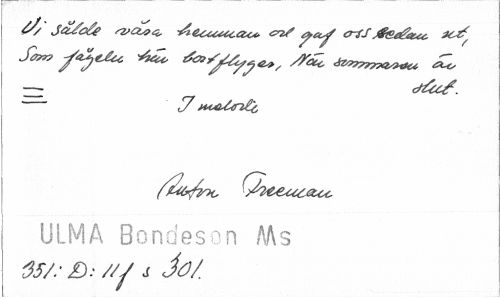 Vi sålde våra hemman och gaf oss sedan ut,
Som fågeln han bortflyger, När sommaren är
slut.
I melodi
Anton Freeman
ULMA Bondeson Ms
351: D: 11f s 301.